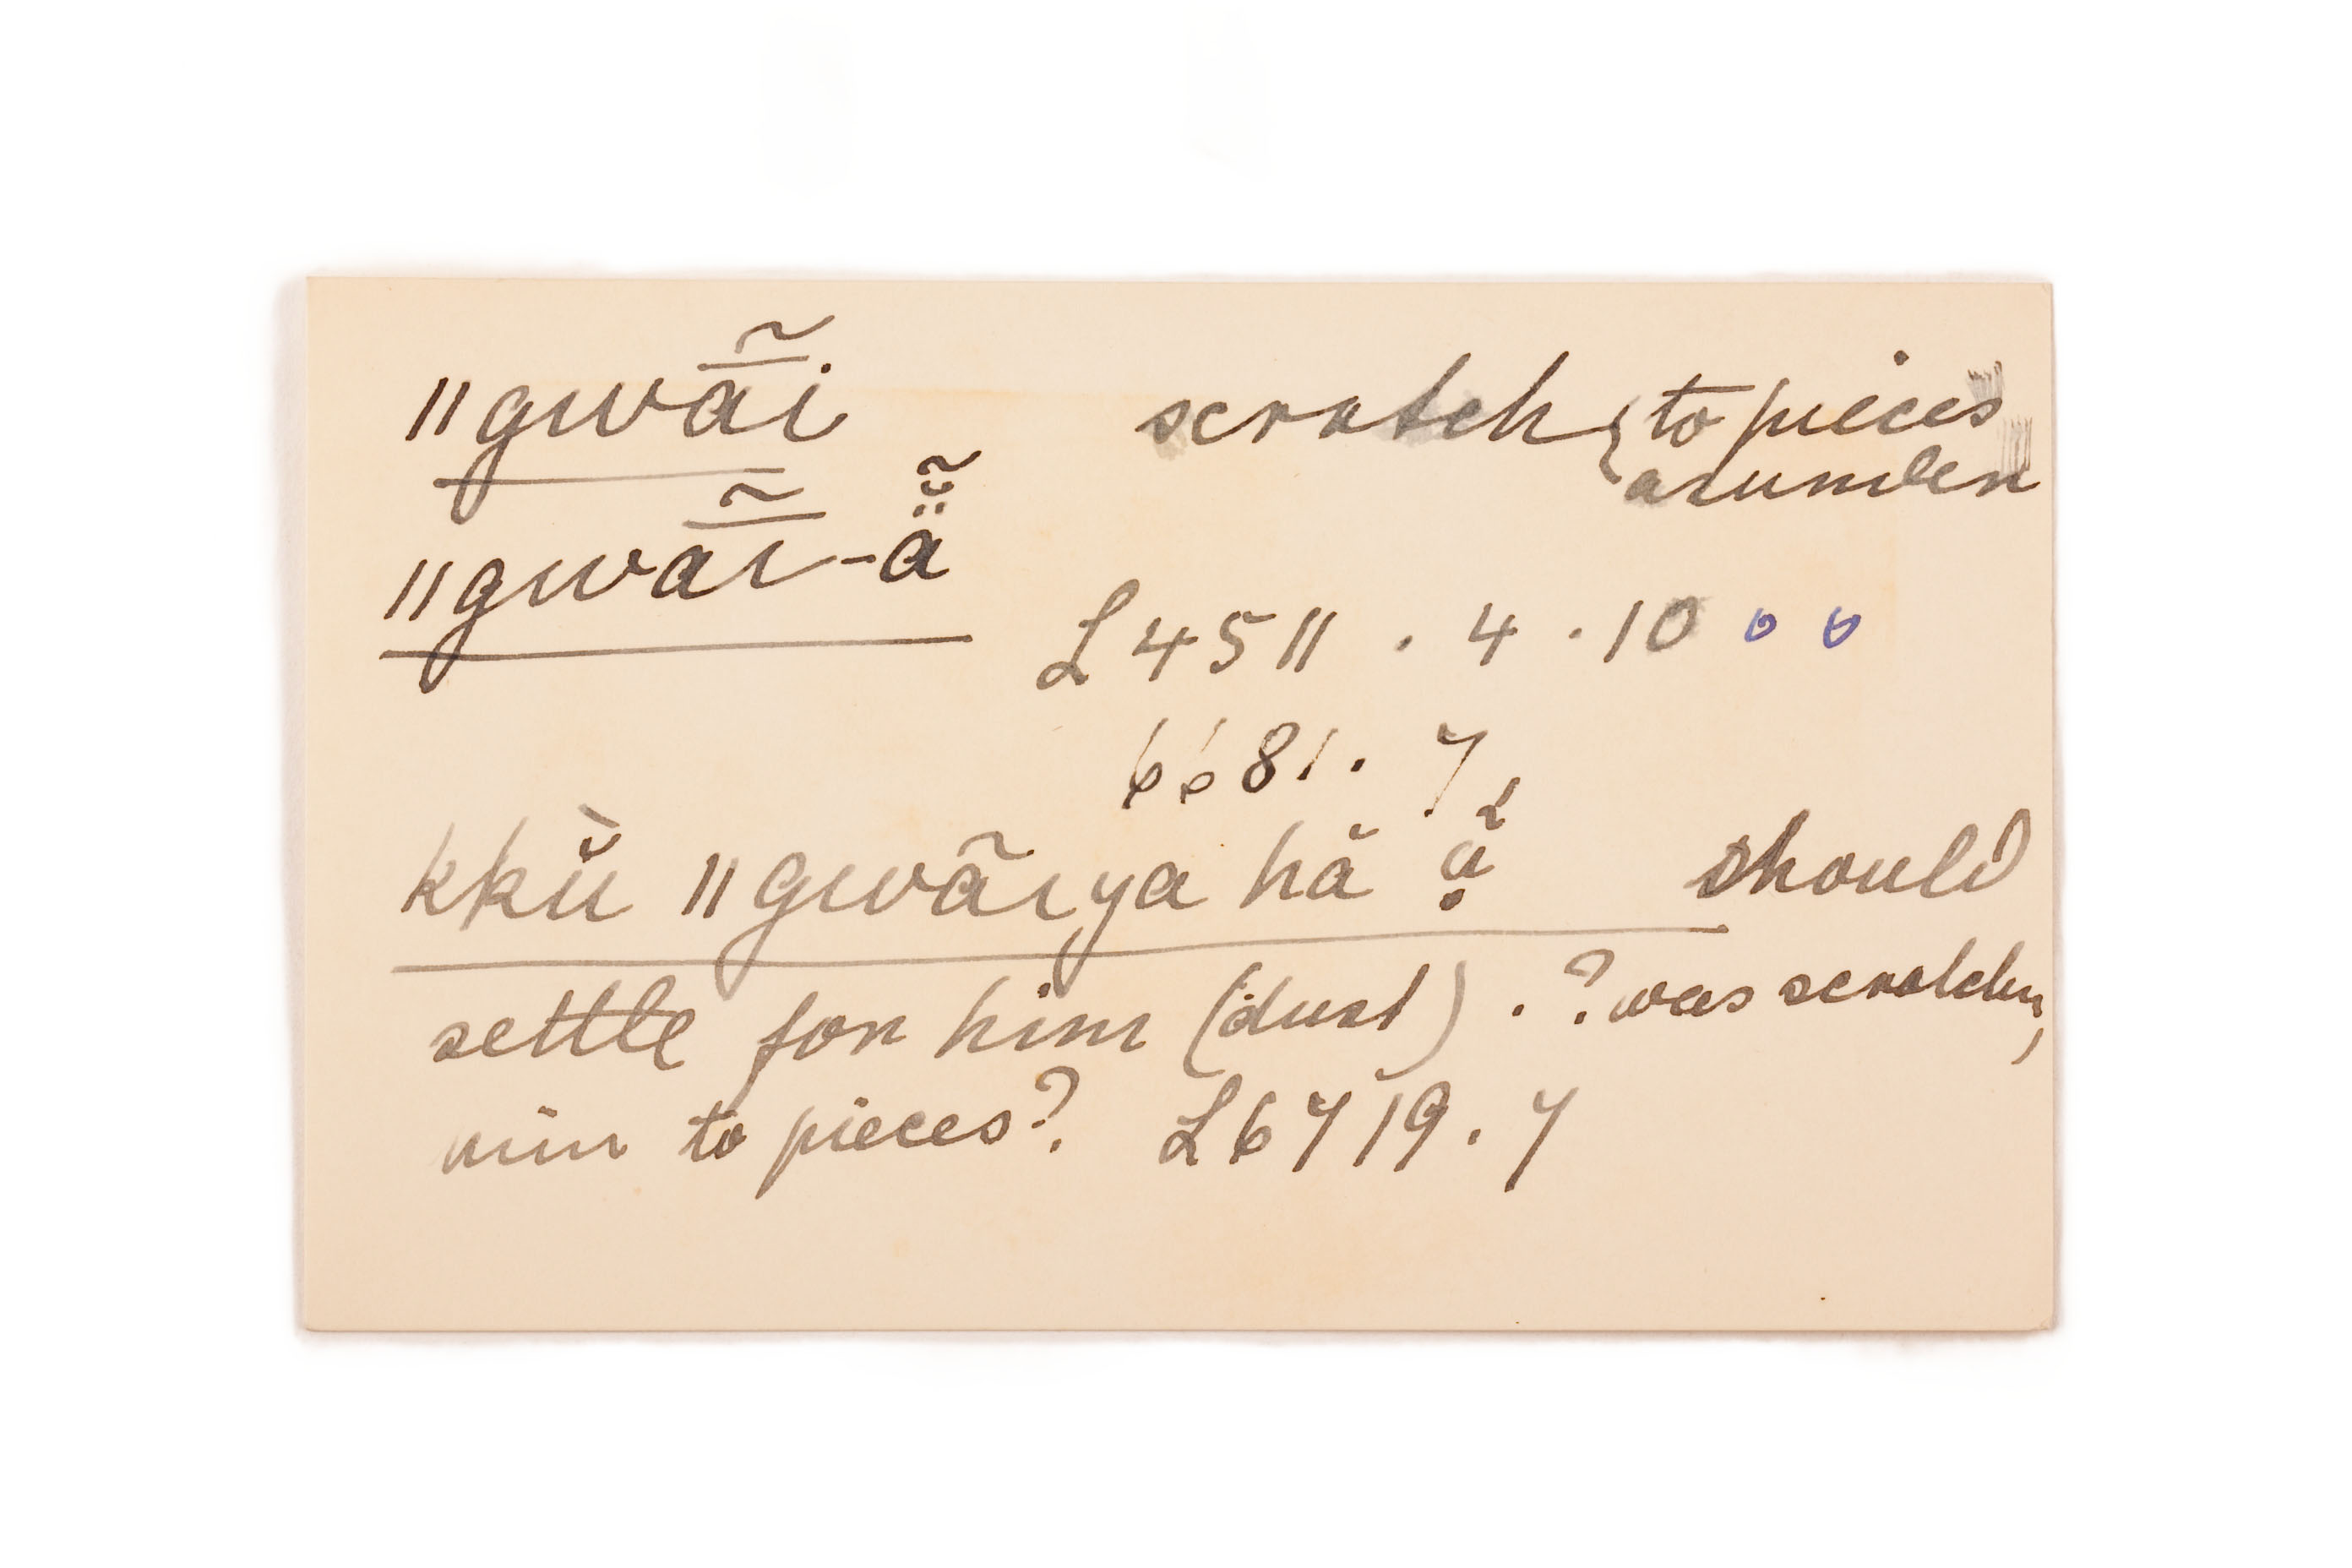 ǁgwā̃i scratch { to pieces
asunder
ǁgwā̃ĩ-ä̆̃
L 4511 . 4 . 10 o o
6681 . 7
kkŭ̀ ǁgwãıya hă ặ́ should
settle for him (dust) . ? was scratching
him to pieces? L 6719 . 7